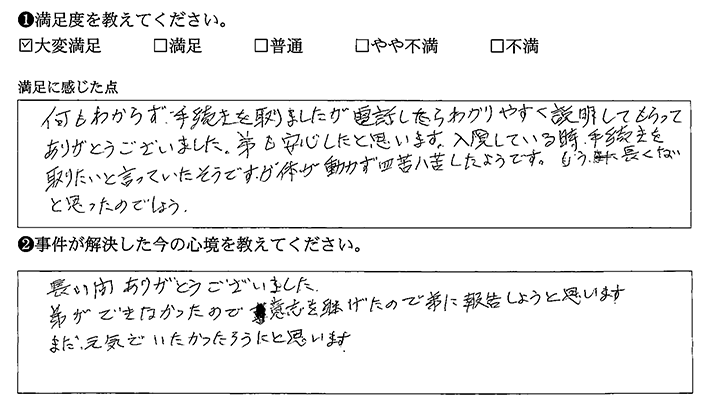 ❶満足度を教えてください。
☑大変満足 □満足 □普通 □やや不満 □不満
満足に感じた点
何もわからず、手続きを取りましたが電話したらわかりやすく説明してもらって
ありがとうございました。弟も安心したと思います。入院している時、手続きを
取りたいと言っていたそうですが体が動かず四苦八苦したようです。もう 長くない
と思ったのでしょう。
❷事件が解決した今の心境を教えてください。
長い間ありがとうございました。
弟ができなかったので 意志を継げたので弟に報告しようと思います
まだ、元気でいたかったろうにと思います